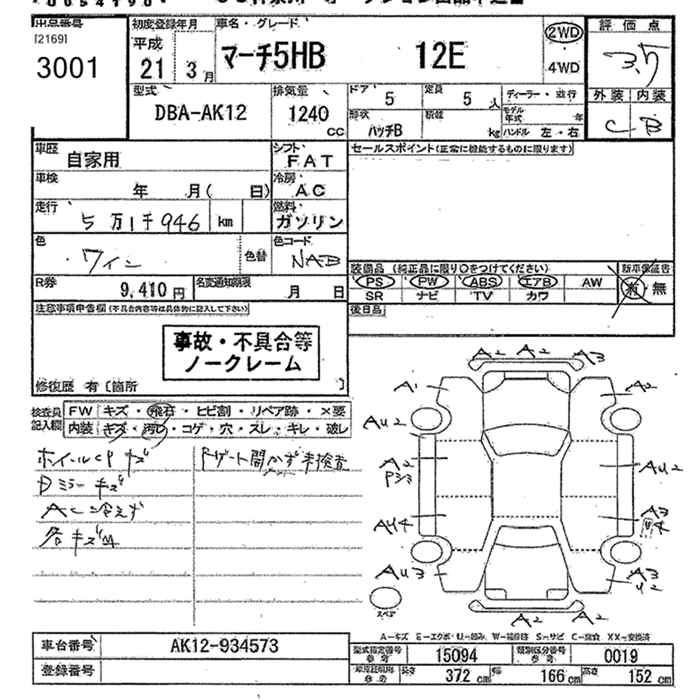 出品番号 [2169] 3001
初度登録年月 平成 21年 3月
車名・グレード マーチ5HB 12E
2WD ・ 4WD
評価点 3.5
型式 DBA-AK12
排気量 1240 CC
ドア 5
定員 5 人
ディーラー・並行
形状 ハッチB
積載 kg
モデル年式 年
ハンドル 左・右
外装 C
内装 B
車歴 自家用
シフト FAT
セールスポイント(正常に機能するものに限ります)
車検 年 月( 日)
冷房 AC
走行 5万1千946 km
燃料 ガソリン
色 ワイン
色替
色コード NAB
装備品 (純正品に限り○をつけてください)
新車保証書 有・無
PS PW ABS エアB AW
SR ナビ TV カワ
R券 9,410円
名変通知期限 月 日
後日品
注意事項申告欄 (不具合内容等は具体的に記入して下さい)
事故・不具合等
ノークレーム
修復歴 有 [箇所 ]
検査員記入欄
FW キズ・飛石・ヒビ割・リペア跡・×要
内装 キズ・汚レ・コゲ・穴・スレ・キレ・破レ
ホイールCPキズ
Rゲート開かず未検査
Dミラーキズ
AC冷えず
各キズ凹
A2 A2 A3
A1 A2
AU2
A2 AU2
P33
A3
AU4
AU3 A3
U2
スペア
A2 A2
A-キズ E-エクボ U-凹み W-補修跡 S-サビ C-腐食 XX-交換済
車台番号 AK12-934573
登録番号
型式指定番号 参考 15094
類別区分番号 参考 0019
車庫証明用 参考 長さ 372 cm 幅 166 cm 高さ 152 cm